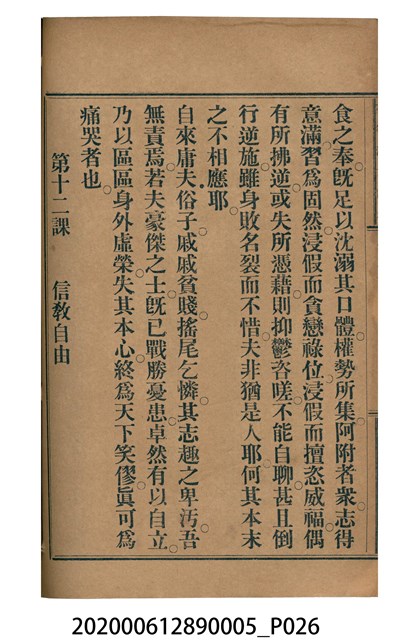 食之奉。旣足以沈溺其口體。權勢所集。阿附者衆。志得
意滿。習爲固然。浸假而貪戀祿位。浸假而擅恣威福。偶
有所拂逆。或失所憑藉。則抑鬱咨嗟。不能自聊。甚且倒
行逆施。雖身敗名裂而不惜。夫非猶是人耶。何其本末
之不相應耶。
自來庸夫俗子。戚戚貧賤。搖尾乞憐。其志趣之卑汚。吾
無責焉。若夫豪傑之士。旣已戰勝憂患。卓然有以自立。
乃以區區身外虛榮。失其本心。終爲天下笑僇。眞可爲
痛哭者也。
第十二課　信敎自由
202000612890005_P026